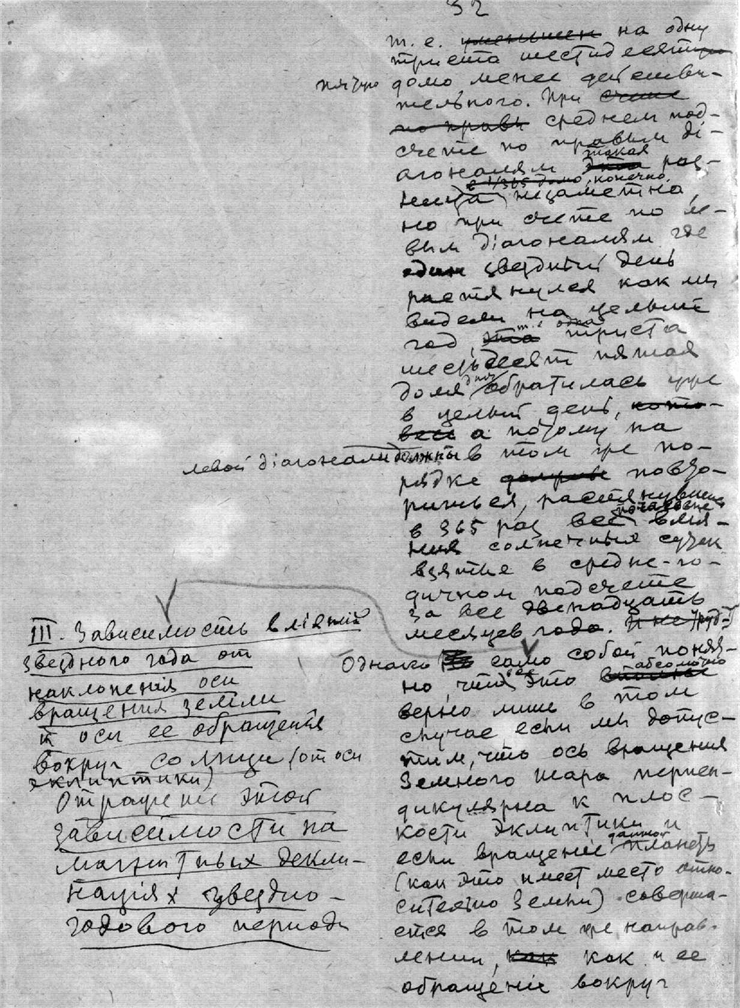 32
т. е. уменьшен на одну
триста шестидесятую
пятую долю менее действи-
тельного. При счете
по правы среднем под-
счете по правым ді-
агоналям эта такая раз-
ница в 1/365 долю, конечно,
незаметна,
но при счете по ле-
вым діагоналям где
один звездный день
растянулся как мы
видели на целый
год эта т. е. одна триста
шестьдесят пятая
доля дня обратилась уже
в целый день, кото-
весь а потому на
левой діагонали должны в том же по-
рядке повто-
риться, растянувшись
в 365 раз все влия-
ния солнечных суток
взятые в средне-го-
дичном подсчете
за все двенадцать
месяцев года.
III. Зависимость вліяній
звездного года от
наклонения оси
вращения земли
и оси ее обращения
вокруг солнца (от оси
эклиптики)
Отражение этой
зависимости на
магнитных декли-
націях звездно-
годового периода
Однако само собой понят-
но, что все это абсолютно
верно лишь в том
случае если мы допус-
тим, что ось вращения
Земного шара перпен-
дикулярна к плос-
кости эклиптики и
если вращеніе данной планеты
(как это имеет место отно-
сительно Земли) соверша-
ется в том же направ-
лении, как как и ее
обращеніе вокруг